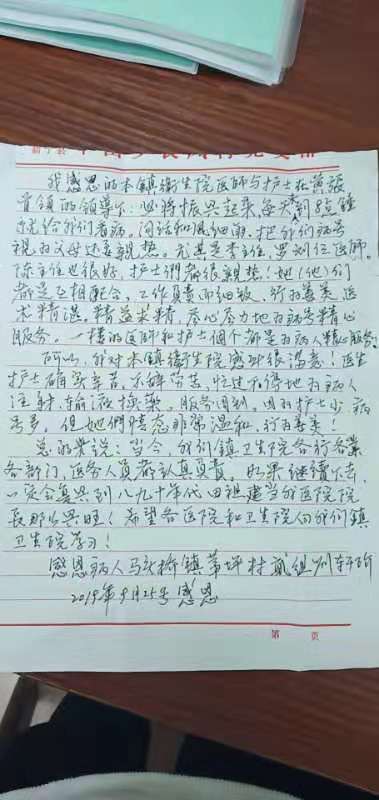 我感恩的本镇衛生院医师与护士在黄張
首領的领导下：必将振兴起来，每天到8点鐘
就给我们看病。问话和風细雨，把我们病号
視为父母还要親热。尤其是李主任，罗刘位医师。
陈主任也很好，护士們都很親热！她(他)们
都是互相配合，工作負責而细致，行为善美医
术精湛，精益求精，尽心尽力地为病号精心
服务。一楼的医师和护士個个都是为病人精心服务。
所以，我对本镇衛生院感到很满意！医生
护士确实辛苦，不辞劳苦，忙过不停地为病人
注射，输液换藥。服务周到。因为护士少病
号多，但她們態态非常温和，行为善美！
总的来说：当今，我们镇卫生院各行各業
各部门，医务人员都认真負責。如果继續下去，
一定会复兴到八九十年代田祖建当我医院院
長那么兴旺！希望各医院和卫生院向我们鎮
卫生院学习！
感恩病人馬头桥镇 坪村貳组刘
2019年9月25号感恩
第 页